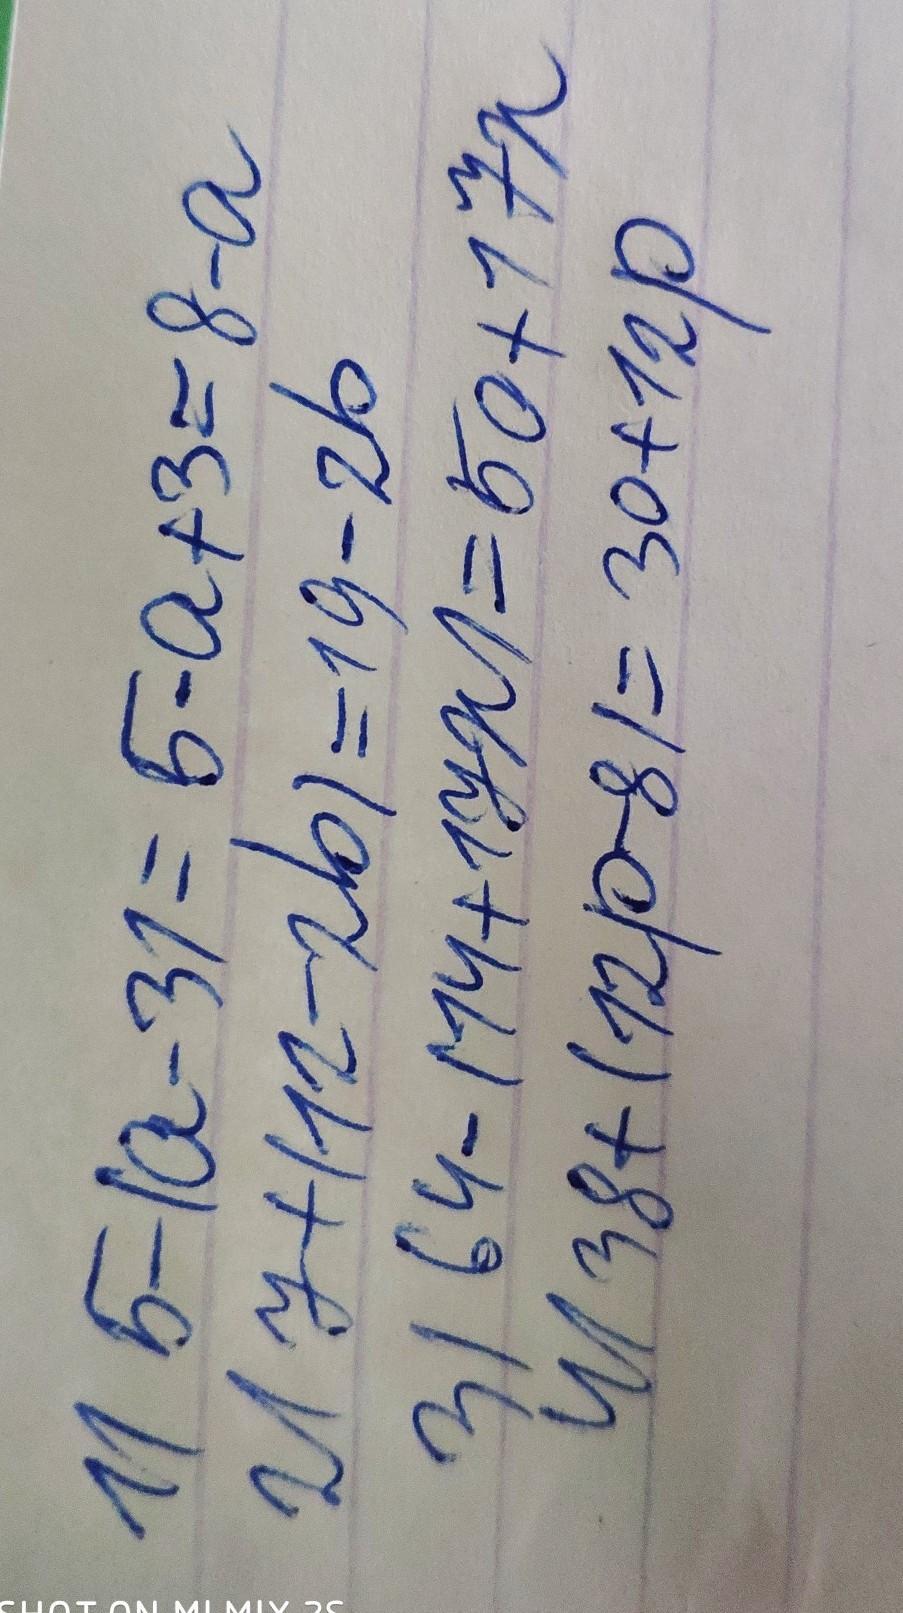 1) 5-(a-3)=5-a+3=8-a
2) 7+(12-2b)=19-2b
3) 64-(14+17x)=50+17x
4) 38+(12p-8)=30+12p
SHOT ON MI MIX 2S